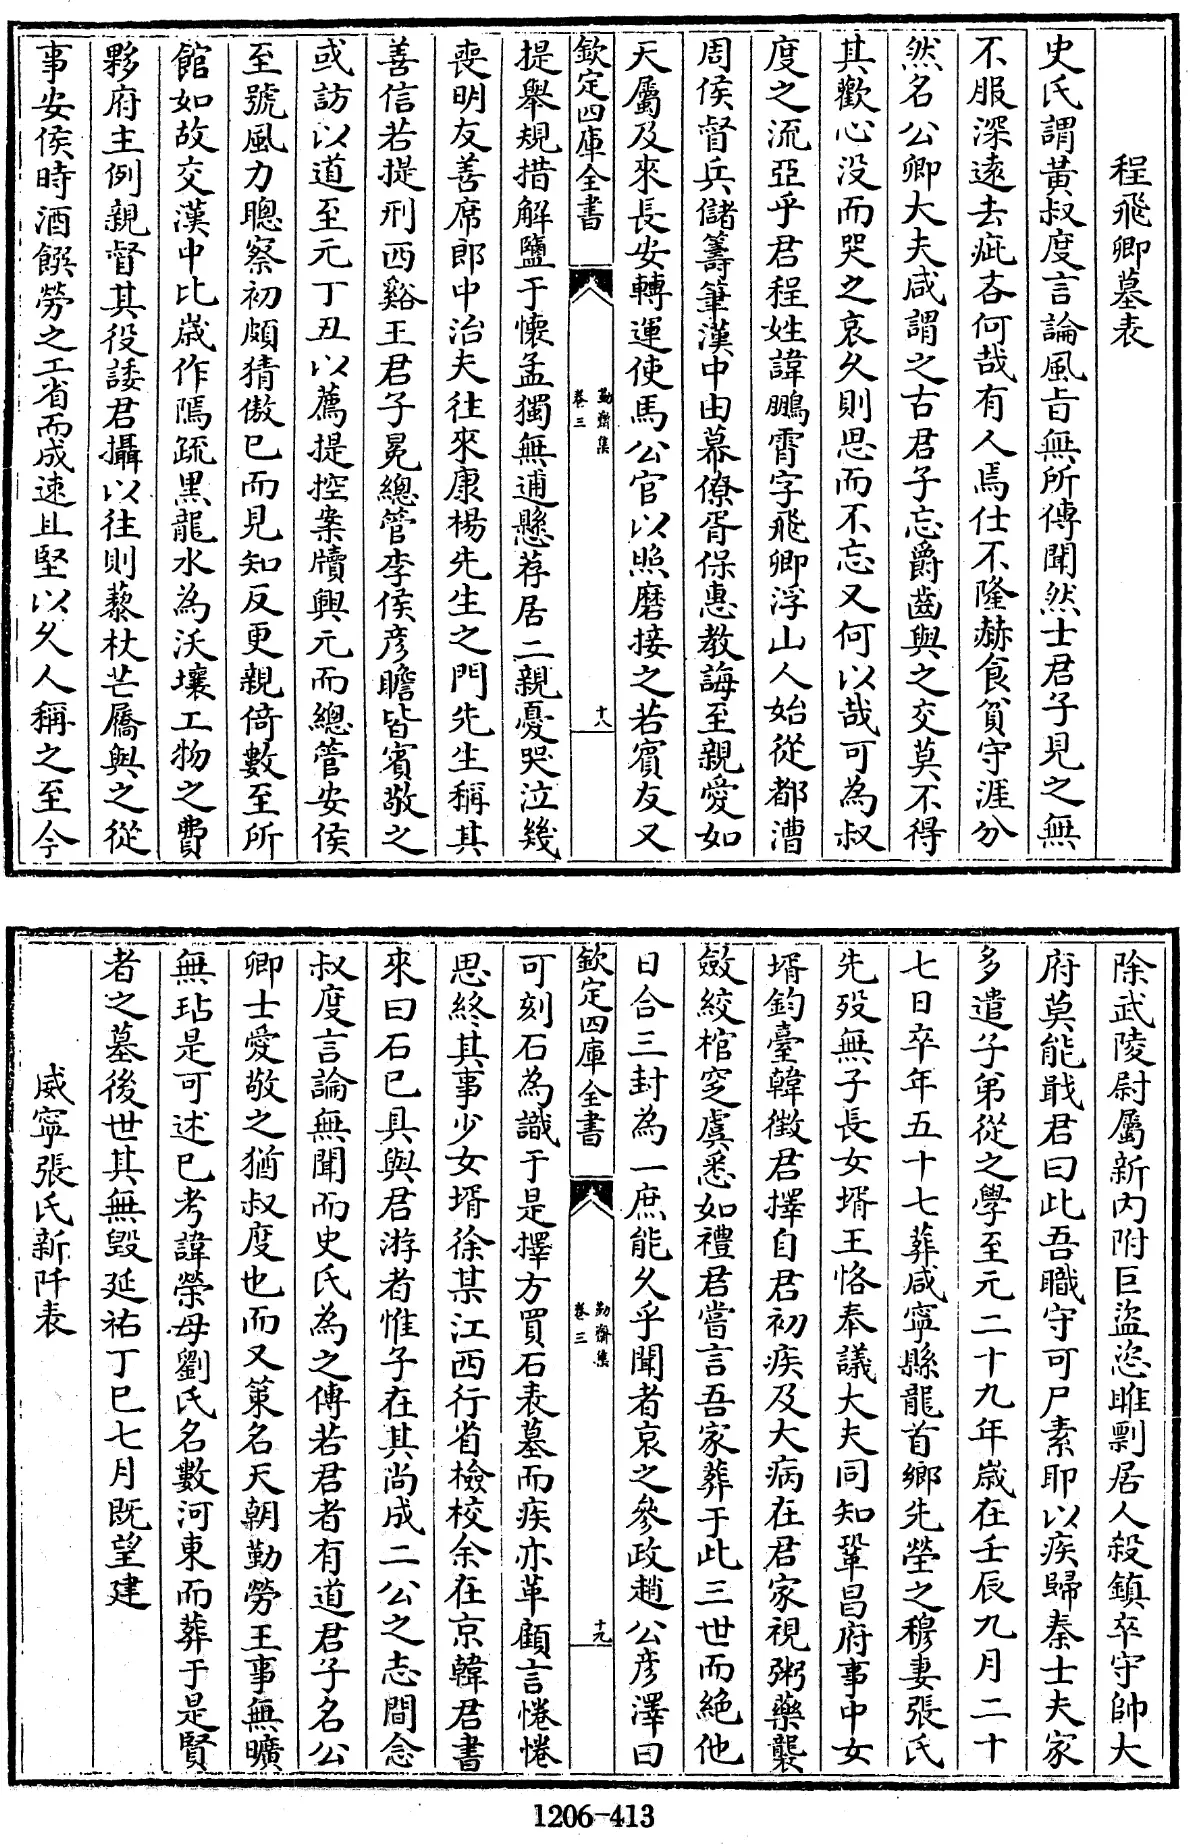 程飛卿墓表
史氏謂黃叔度言論風旨無所傳聞然士君子見之無
不服深遠去疵吝何哉有人焉仕不隆赫食貧守涯分
然名公卿大夫咸謂之古君子忘爵齒與之交莫不得
其歡心没而哭之哀久則思而不忘又何以哉可為叔
度之流亞乎君程姓諱鵬霄字飛卿浮山人始從都漕
周侯督兵儲籌筆漢中由幕僚胥保惠教誨至親愛如
天屬及來長安轉運使馬公官以照磨接之若賓友又
欽定四庫全書
勤齋集
卷三
十八
提舉規措解鹽于懷孟獨無逋懸荐居二親憂哭泣幾
喪明友善席郎中治夫往來康楊先生之門先生稱其
善信若提刑西谿王君子冕總管李侯彦瞻皆賓敬之
或訪以道至元丁丑以薦提控案牘興元而總管安侯
至號風力聰察初頗猜傲已而見知反更親倚數至所
館如故交漢中比歳作隝疏黑龍水為沃壤工物之費
夥府主例親督其役諉君攝以往則藜杖芒屩與之從
事安侯時酒饌勞之工省而成速且堅以久人稱之至今
除武陵尉屬新内附巨盜恣睢剽居人殺鎮卒守帥大
府莫能戢君曰此吾職守可尸素耶以疾歸秦士夫家
多遣子弟從之學至元二十九年歳在壬辰九月二十
七日卒年五十七葬咸寧縣龍首鄉先塋之穆妻張氏
先歿無子長女壻王恪奉議大夫同知鞏昌府事中女
壻鈞臺韓徵君擇自君初疾及大病在君家視粥藥襲
斂絞棺窆虞悉如禮君嘗言吾家葬于此三世而絶他
日合三封為一庶能久乎聞者哀之參政趙公彦澤曰
欽定四庫全書
勤齋集
卷三
十九
可刻石為識于是擇方買石表墓而疾亦革顧言惓惓
思終其事少女壻徐某江西行省檢校余在京韓君書
來曰石已具與君游者惟子在其尚成二公之志間念
叔度言論無聞而史氏為之傳若君者有道君子名公
卿士愛敬之猶叔度也而又策名天朝勤勞王事無曠
無玷是可述已考諱榮母劉氏名數河東而葬于是賢
者之墓後世其無毀延祐丁巳七月既望建
咸寧張氏新阡表
1206-413